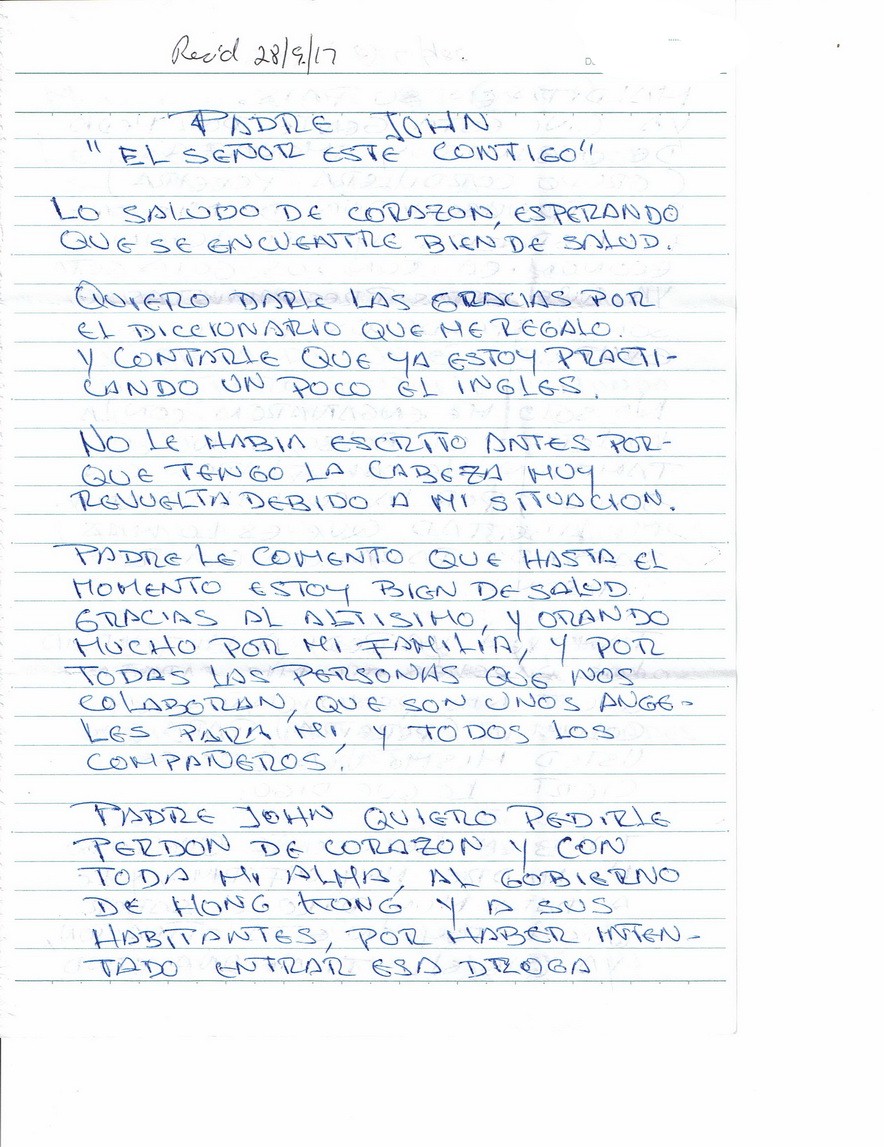 Rec'd 28/9/17
D.
PADRE JOHN
"EL SEÑOR ESTE CONTIGO"
LO SALUDO DE CORAZON, ESPERANDO
QUE SE ENCUENTRE BIEN DE SALUD.
QUIERO DARLE LAS GRACIAS POR
EL DICCIONARIO QUE ME REGALO.
Y CONTARLE QUE YA ESTOY PRACTI-
CANDO UN POCO EL INGLES.
NO LE HABIA ESCRITO ANTES POR-
QUE TENGO LA CABEZA MUY
REVUELTA DEBIDO A MI SITUACION.
PADRE LE COMENTO QUE HASTA EL
MOMENTO ESTOY BIEN DE SALUD.
GRACIAS AL ALTISIMO, Y ORANDO
MUCHO POR MI FAMILIA, Y POR
TODAS LAS PERSONAS QUE NOS
COLABORAN, QUE SON UNOS ANGE-
LES PARA MI, Y TODOS LOS
COMPAÑEROS.
PADRE JOHN QUIERO PEDIRLE
PERDON DE CORAZON Y CON
TODA MI ALMA, AL GOBIERNO
DE HONG KONG Y A SUS
HABITANTES, POR HABER INTEN-
TADO ENTRAR ESA DROGA